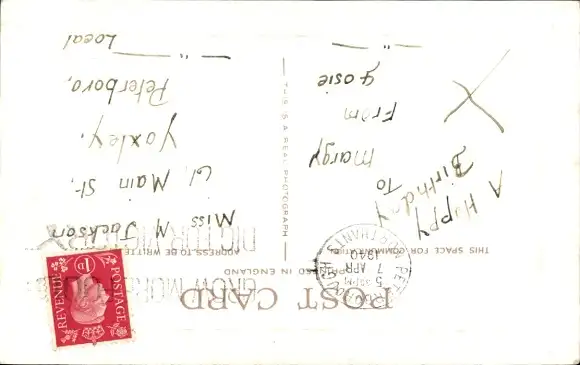 POST CARD
PRINTED IN ENGLAND
THIS SPACE FOR COMMUNICATION
ADDRESS TO BE WRITTEN
THIS IS A REAL PHOTOGRAPH
5 PM
7 APR
1940
NORTHANTS
GROW MORE
DIG FOR VICTORY
POSTAGE
REVENUE
1D
A Happy
Birthday
To
Margy
From
Josie
X
Miss M Jackson
61. Main St,
Yaxley,
Peterboro,
Local